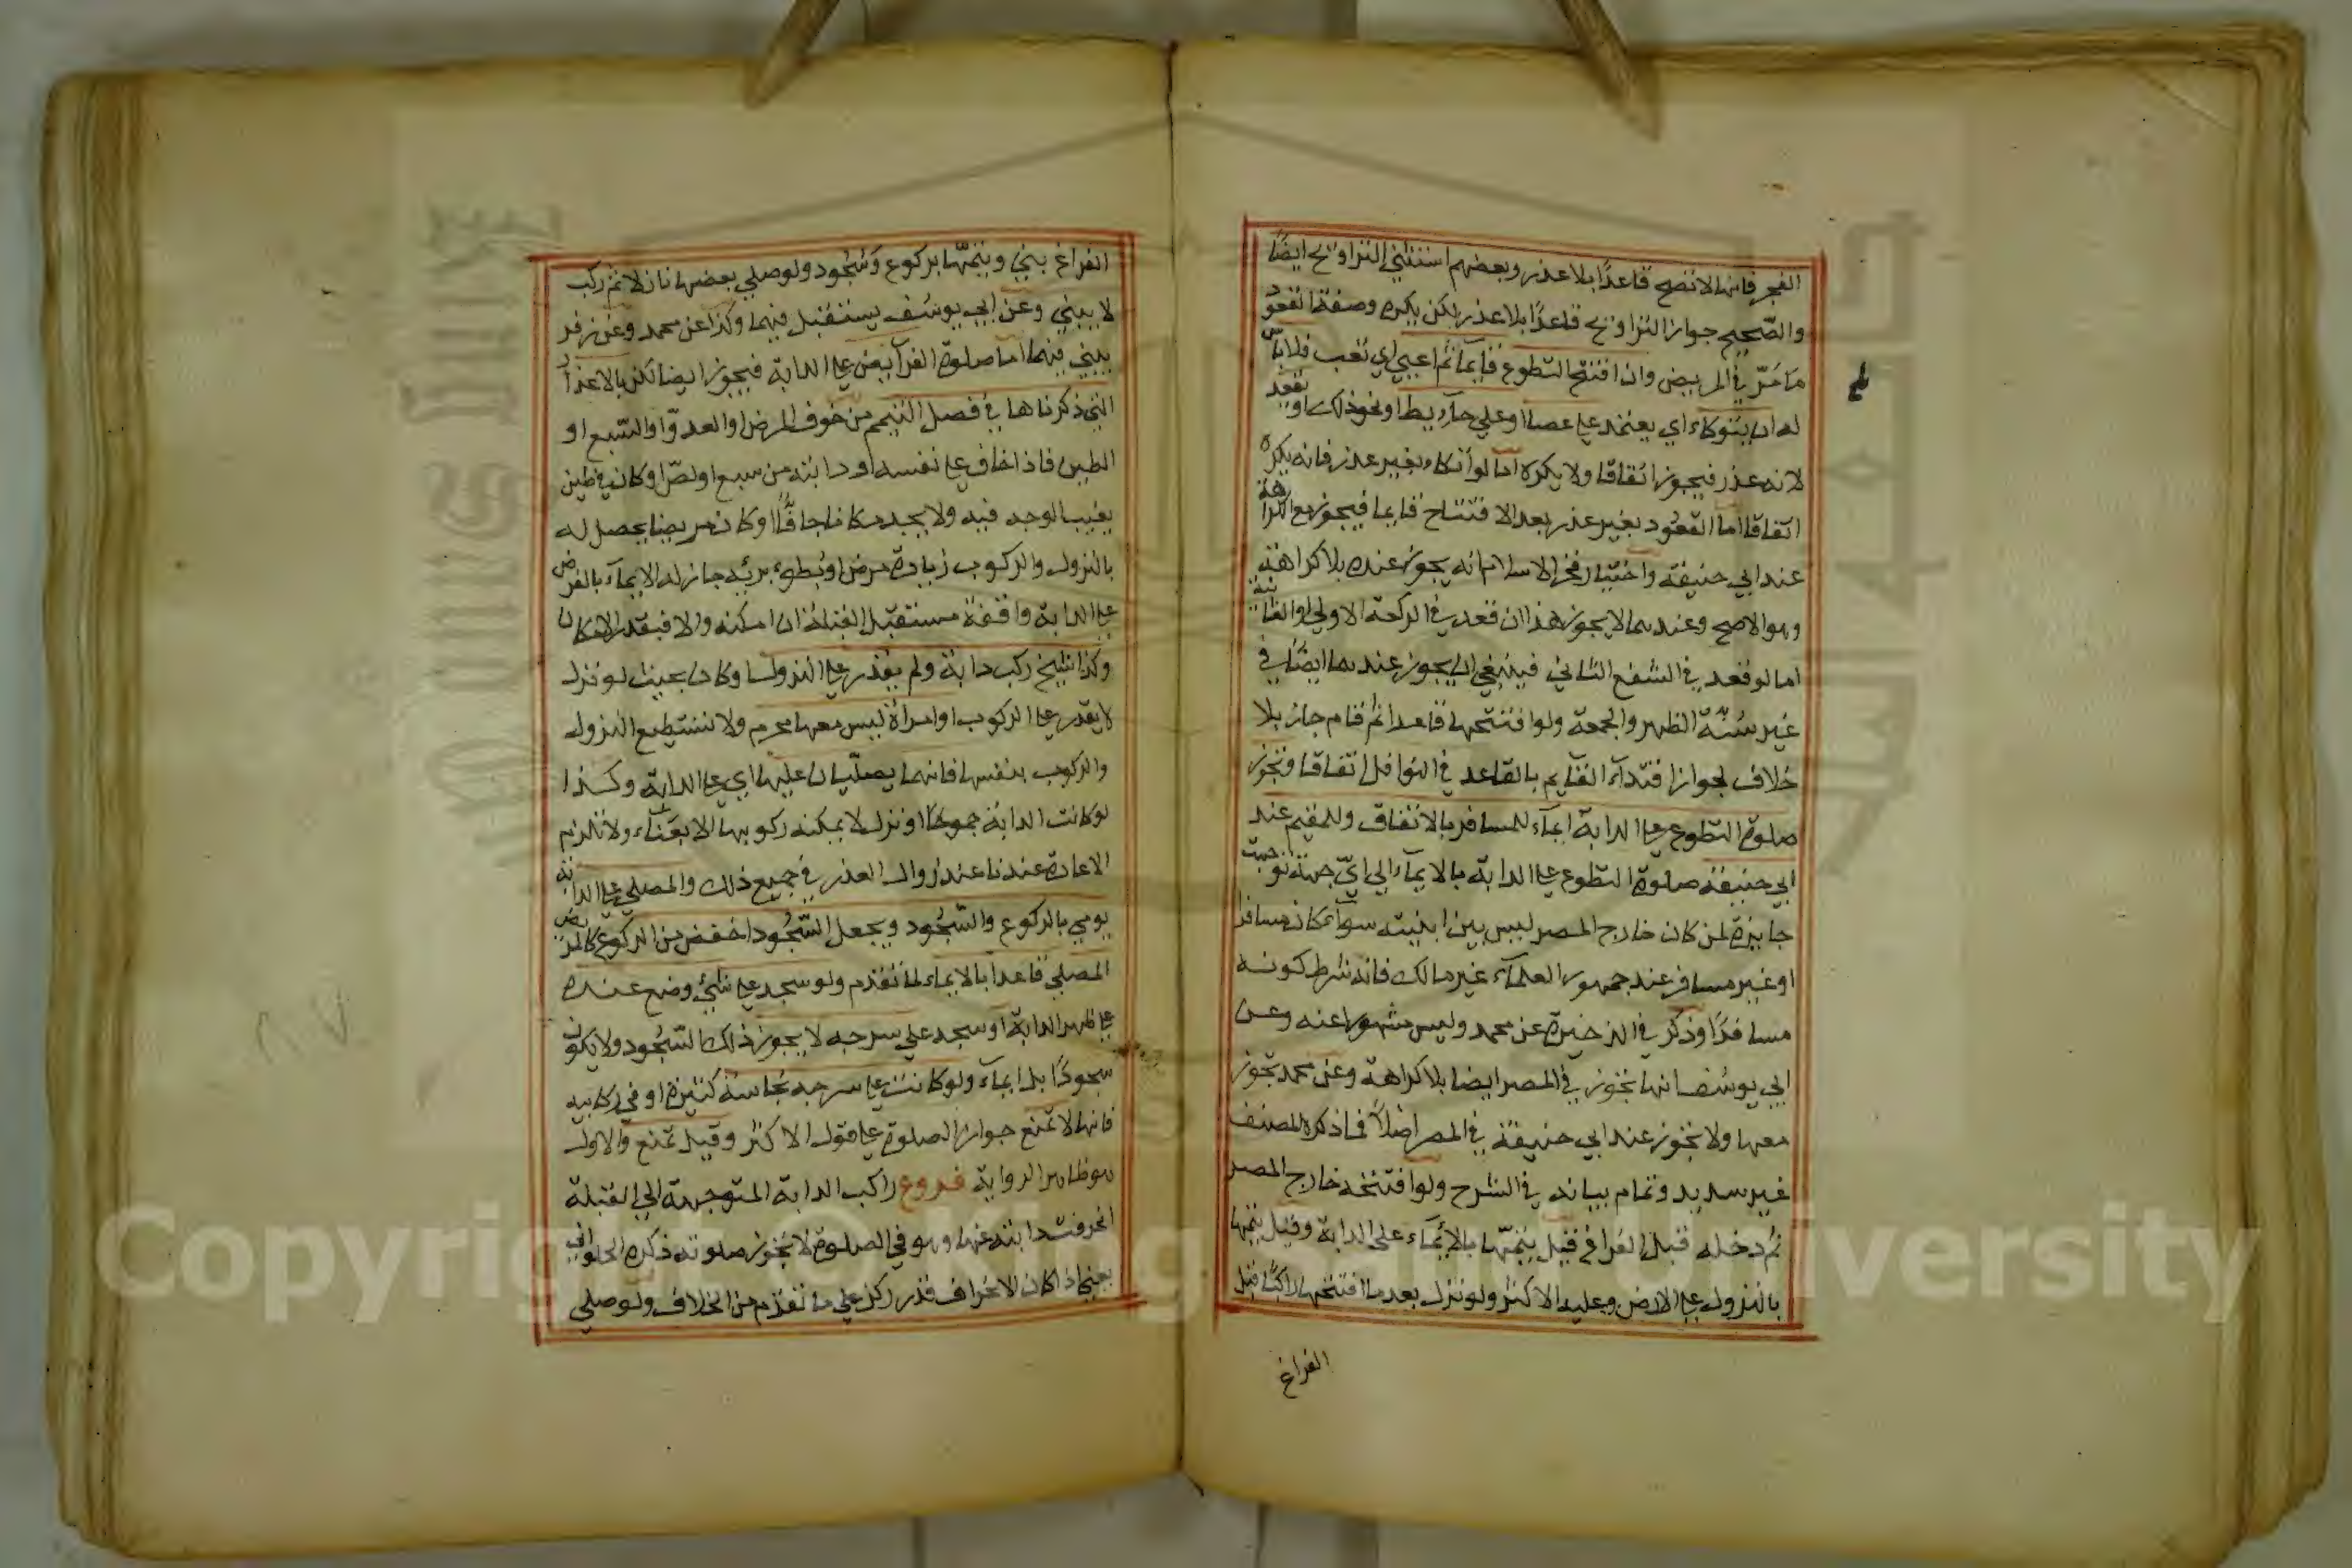 الفجر فانها لا تصح قاعدًا بلا عذر وبعضهم استثني التراويح ايضًا
والصّحيح جواز التراويح قاعدًا بلا عذر لكن يكره وصفة القعود
ما مَرّ في المريض وان افتتح التطوع قايمًا ثم اعيي اي تعب فلا باس
له ان يتوكاء اي يعتمد علي عصا او علي حايط او نحو ذلك او يقعد
لانه عذر فيجوز اتفاقا ولا يكره اما لو اتكاء بغير عذر فانه يكره
اتفاقا اما القعُود بغير عذر بعد الافتتاح قايما فيجوز مع الكراهة
عند ابي حنيفة واختيار فخر الاسلام انه يجوز عنده بلا كراهة
وهو الاصح وعندهما لا يجوز هذا ان قعد في الركعة الاولي او الثانية
اما لو قعد في الشفع الثاني فينبغي ان يجوز عندهما ايضًا في
غير سُنّة الظهر والجمعة ولو افتتحها قاعدا ثم قام جاز بلا
خلاف لجواز اقتدآء القايم بالقاعد في النوافل اتفاقا وتجوز
صلوة التطوع علي الدابة ايمآء للمسافر بالاتفاق وللمقيم عند
ابي حنيفة صلوة التطوع علي الدابة بالايمآء الي ايّ جهة توجهت
جايزة لمن كان خارج المصر ليس بين ابنيته سوآء كان مسافرا
او غير مسافر عند جمهور العلمآء غير مالك فانه شرط كونه
مسافرًا وذكر في الذخيرة عن محمد وليس مشهورا عنه وعن
ابي يوسُف انها تجوز في المصر ايضا بلا كراهة وعن محمد تجوز
معها ولا تجوز عند ابي حنيفة في المصر اصْلاً فما ذكره المصنف
غير سديد وتمام بيانه في الشرح ولو افتتحه خارج المصر
ثم دخله قبل الفراغ قيل يتمّها بالايمآء علي الدابة وقيل يتمها
بالنزول علي الارض وعليه الاكثر ولو نزل بعد ما افتتحها راكبًا قبل
الفراغ
الفراغ يبني ويتمّها بركوع وسُجُود ولو صلي بعضها نازلا ثم ركب
لا يبني وعن ابي يوسُف يستقبل فيهما وكذا عن محمد وعن زفر
يبني فيهما اما صلوة الفرآيض علي الدابة فيجوز ايضا لكن بالاعذار
التي ذكرناها في فصل التيمم من خوف المرض او العدوّ او السبع او
الطين فاذا خاف علي نفسه او دابته من سبع او لصّ او كان في طين
يغيب الوجه فيه ولا يجد مكانا جافًّا او كان مريضا يحصل له
بالنزول والركوب زيادة مرض او بُطوء برئه جاز له الايمآء بالفرض
علي الدابة واقفةً مستقبل القبلة ان امكنه والا فبقدر الامكان
وكذا شيخ ركب دابة ولم يقدر علي النزول وكان بحيث لو نزل
لا يقدر علي الركوب او امرأة ليس معها محرم ولا تستطيع النزول
والركوب بنفسها فانهما يصلّيان عليها اي علي الدابة وكذا
لو كانت الدابة جموحًا او نزل لا يمكنه ركوبها الا بعَناء ولا تلزم
الاعادة عندنا عند زوال العذر في جميع ذلك والمصلي علي الدابة
يومي بالركوع والسّجُود ويجعل السّجُود اخفض من الركوع كالمريض
المصلي قاعدا بالايماء لما تقدم ولو سجد علي شئ وضع عنده
علي ظهر الدابة او سجد علي سرجه لا يجوز ذلك السّجُود ولا يكون
سجودًا بل ايمآء ولو كانت علي سرجه نجاسة كثيرة او في ركابيه
فانها لا تمنع جواز الصلوة علي قول الاكثر وقيل تمنع والاول
هو ظاهر الرواية فروع راكب الدابة المتوجهة الي القبلة
انحرفت دابته عنها وهو في الصلوة لا تجوز صلوته ذكره الحلواني
يعني اذا كان الانحراف قدر ركن علي ما تقدم من الخلاف ولو صلي
Copyright © King Saud University